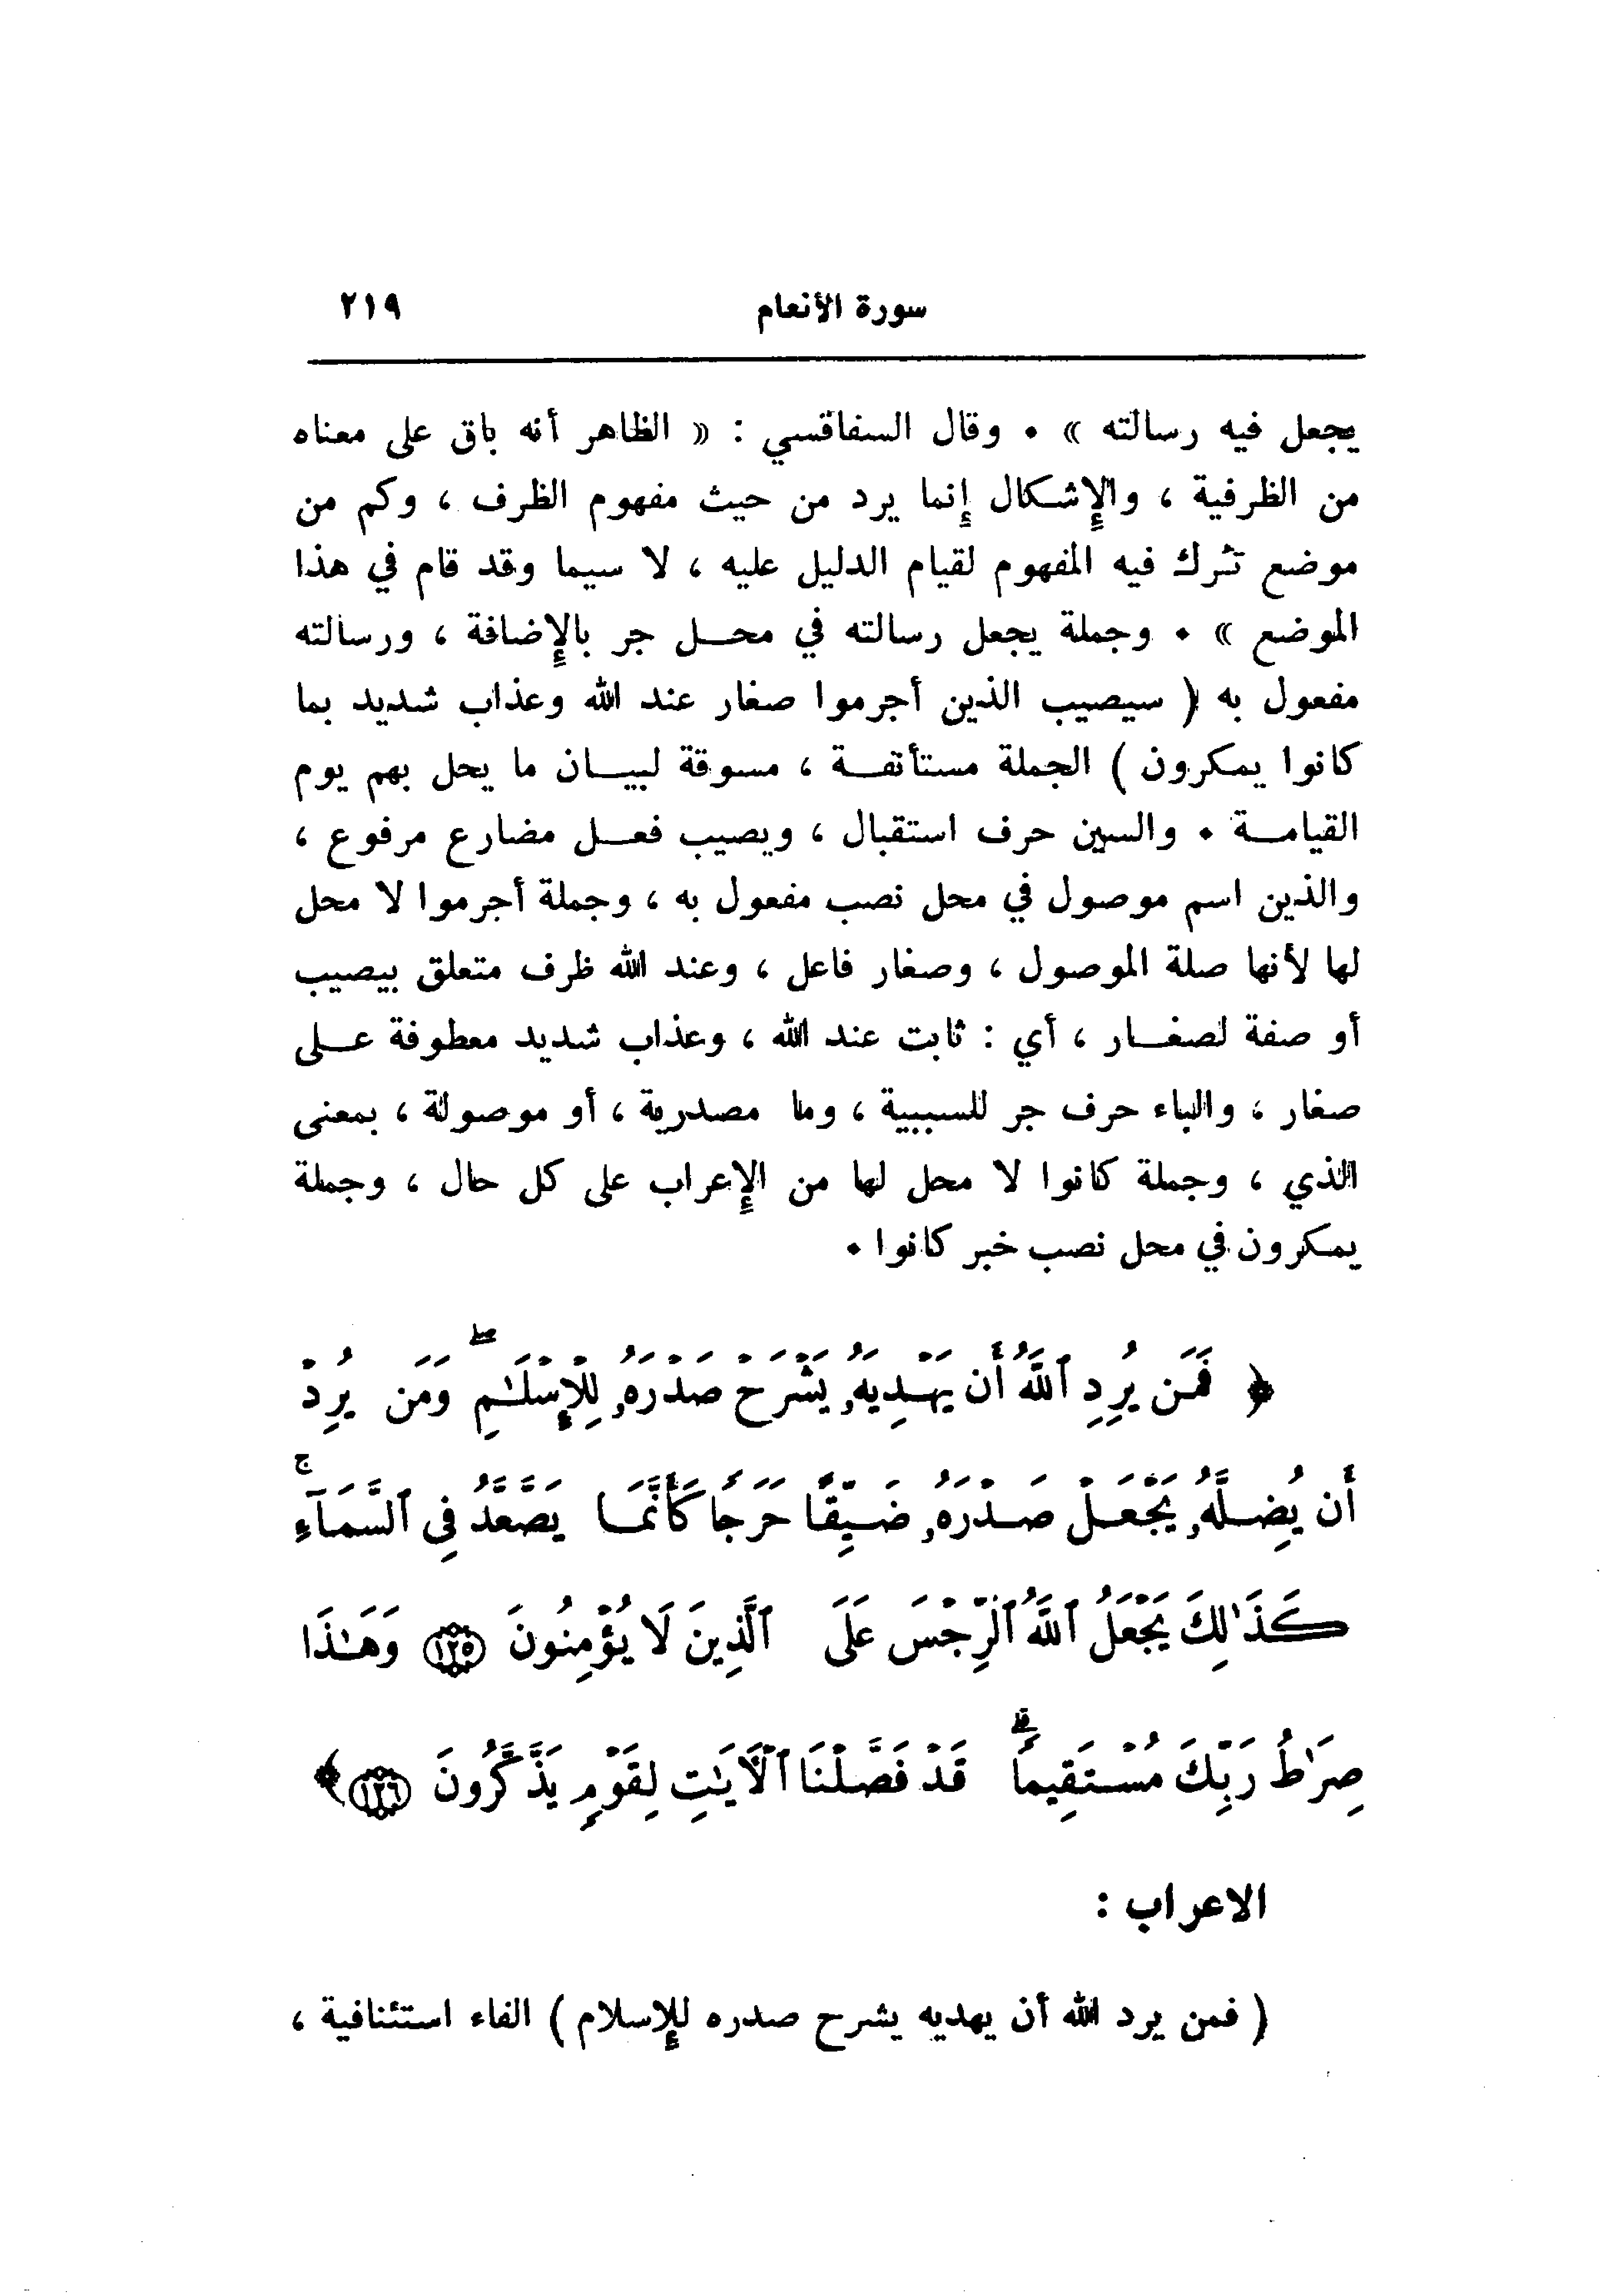 سورة الأنعام ٢١٩
يجعل فيه رسالته » ٠ وقال السفاقسي : « الظاهر أنه باق على معناه
من الظرفية ، والإشكال إنما يرد من حيث مفهوم الظرف ، وكم من
موضع ترك فيه المفهوم لقيام الدليل عليه ، لا سيما وقد قام في هذا
الموضع » ٠ وجملة يجعل رسالته في محل جر بالإضافة ، ورسالته
مفعول به ( سيصيب الذين أجرموا صغار عند الله وعذاب شديد بما
كانوا يمكرون ) الجملة مستأنفة ، مسوقة لبيان ما يحل بهم يوم
القيامة ٠ والسين حرف استقبال ، ويصيب فعل مضارع مرفوع ،
والذين اسم موصول في محل نصب مفعول به ، وجملة أجرموا لا محل
لها لأنها صلة الموصول ، وصغار فاعل ، وعند الله ظرف متعلق بيصيب
أو صفة لصغار ، أي : ثابت عند الله ، وعذاب شديد معطوفة على
صغار ، والباء حرف جر للسببية ، وما مصدرية ، أو موصولة ، بمعنى
الذي ، وجملة كانوا لا محل لها من الإعراب على كل حال ، وجملة
يمكرون في محل نصب خبر كانوا ٠
﴿ فَمَن يُرِدِ ٱللَّهُ أَن يَهْدِيَهُۥ يَشْرَحْ صَدْرَهُۥ لِلْإِسْلَٰمِ ۖ وَمَن يُرِدْ
أَن يُضِلَّهُۥ يَجْعَلْ صَدْرَهُۥ ضَيِّقًا حَرَجًا كَأَنَّمَا يَصَّعَّدُ فِى ٱلسَّمَآءِ ۚ
كَذَٰلِكَ يَجْعَلُ ٱللَّهُ ٱلرِّجْسَ عَلَى ٱلَّذِينَ لَا يُؤْمِنُونَ ١٢٥ وَهَٰذَا
صِرَٰطُ رَبِّكَ مُسْتَقِيمًا ۗ قَدْ فَصَّلْنَا ٱلْأَيَٰتِ لِقَوْمٍ يَذَّكَّرُونَ ١٢٦ ﴾
الاعراب :
( فمن يرد الله أن يهديه يشرح صدره للإسلام ) الفاء استئنافية ،